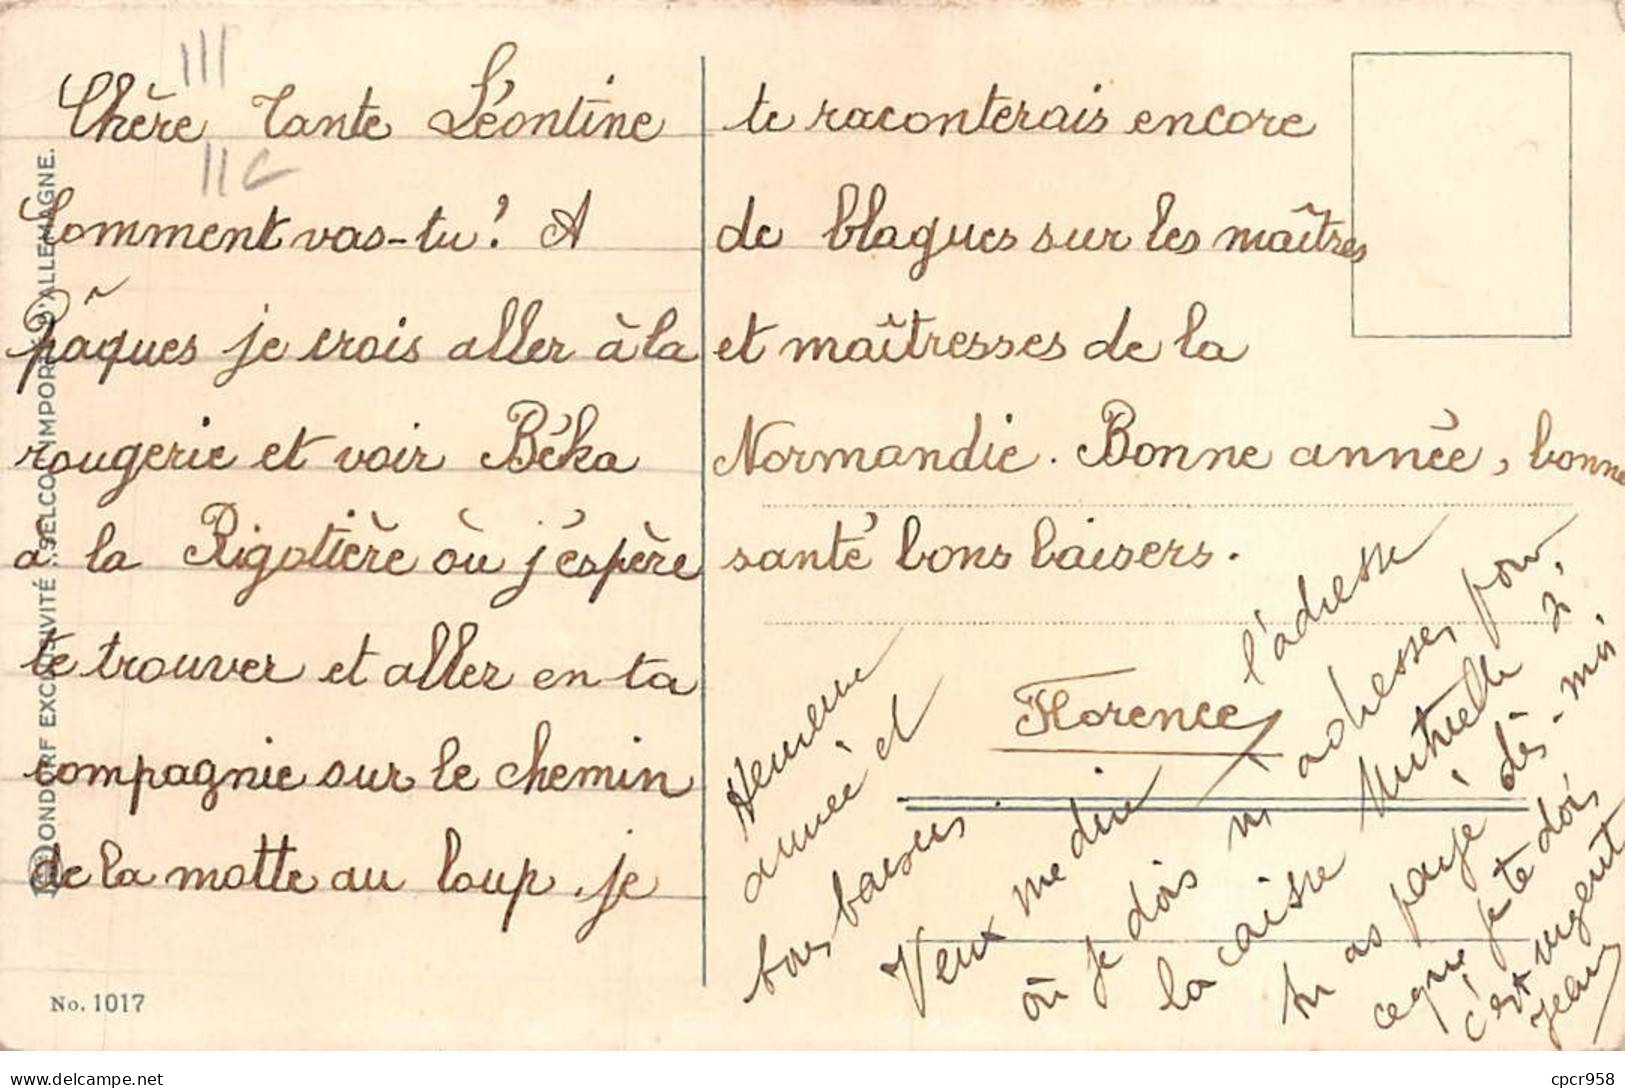 Chère Tante Léontine
Comment vas-tu? A
Pâques je crois aller à la
rougerie et voir Béka
a la Rigotière où j'éspère
te trouver et aller en ta
compagnie sur le chemin
de la motte au loup. je
te raconterais encore
de blagues sur les maîtres
et maîtresses de la
Normandie. Bonne année, bonne
santé bons baisers.
Florence
Heureuse
année et
bons baisers
Veux me dire l'adresse
où je dois m'adresser pour
la caisse Mutuelle si
tu as payé dès-mis
ce que je te dois
c'est urgent
Jean
EXCLUSIVITÉ
D'ALLEMAGNE.
No. 1017
cpcr958